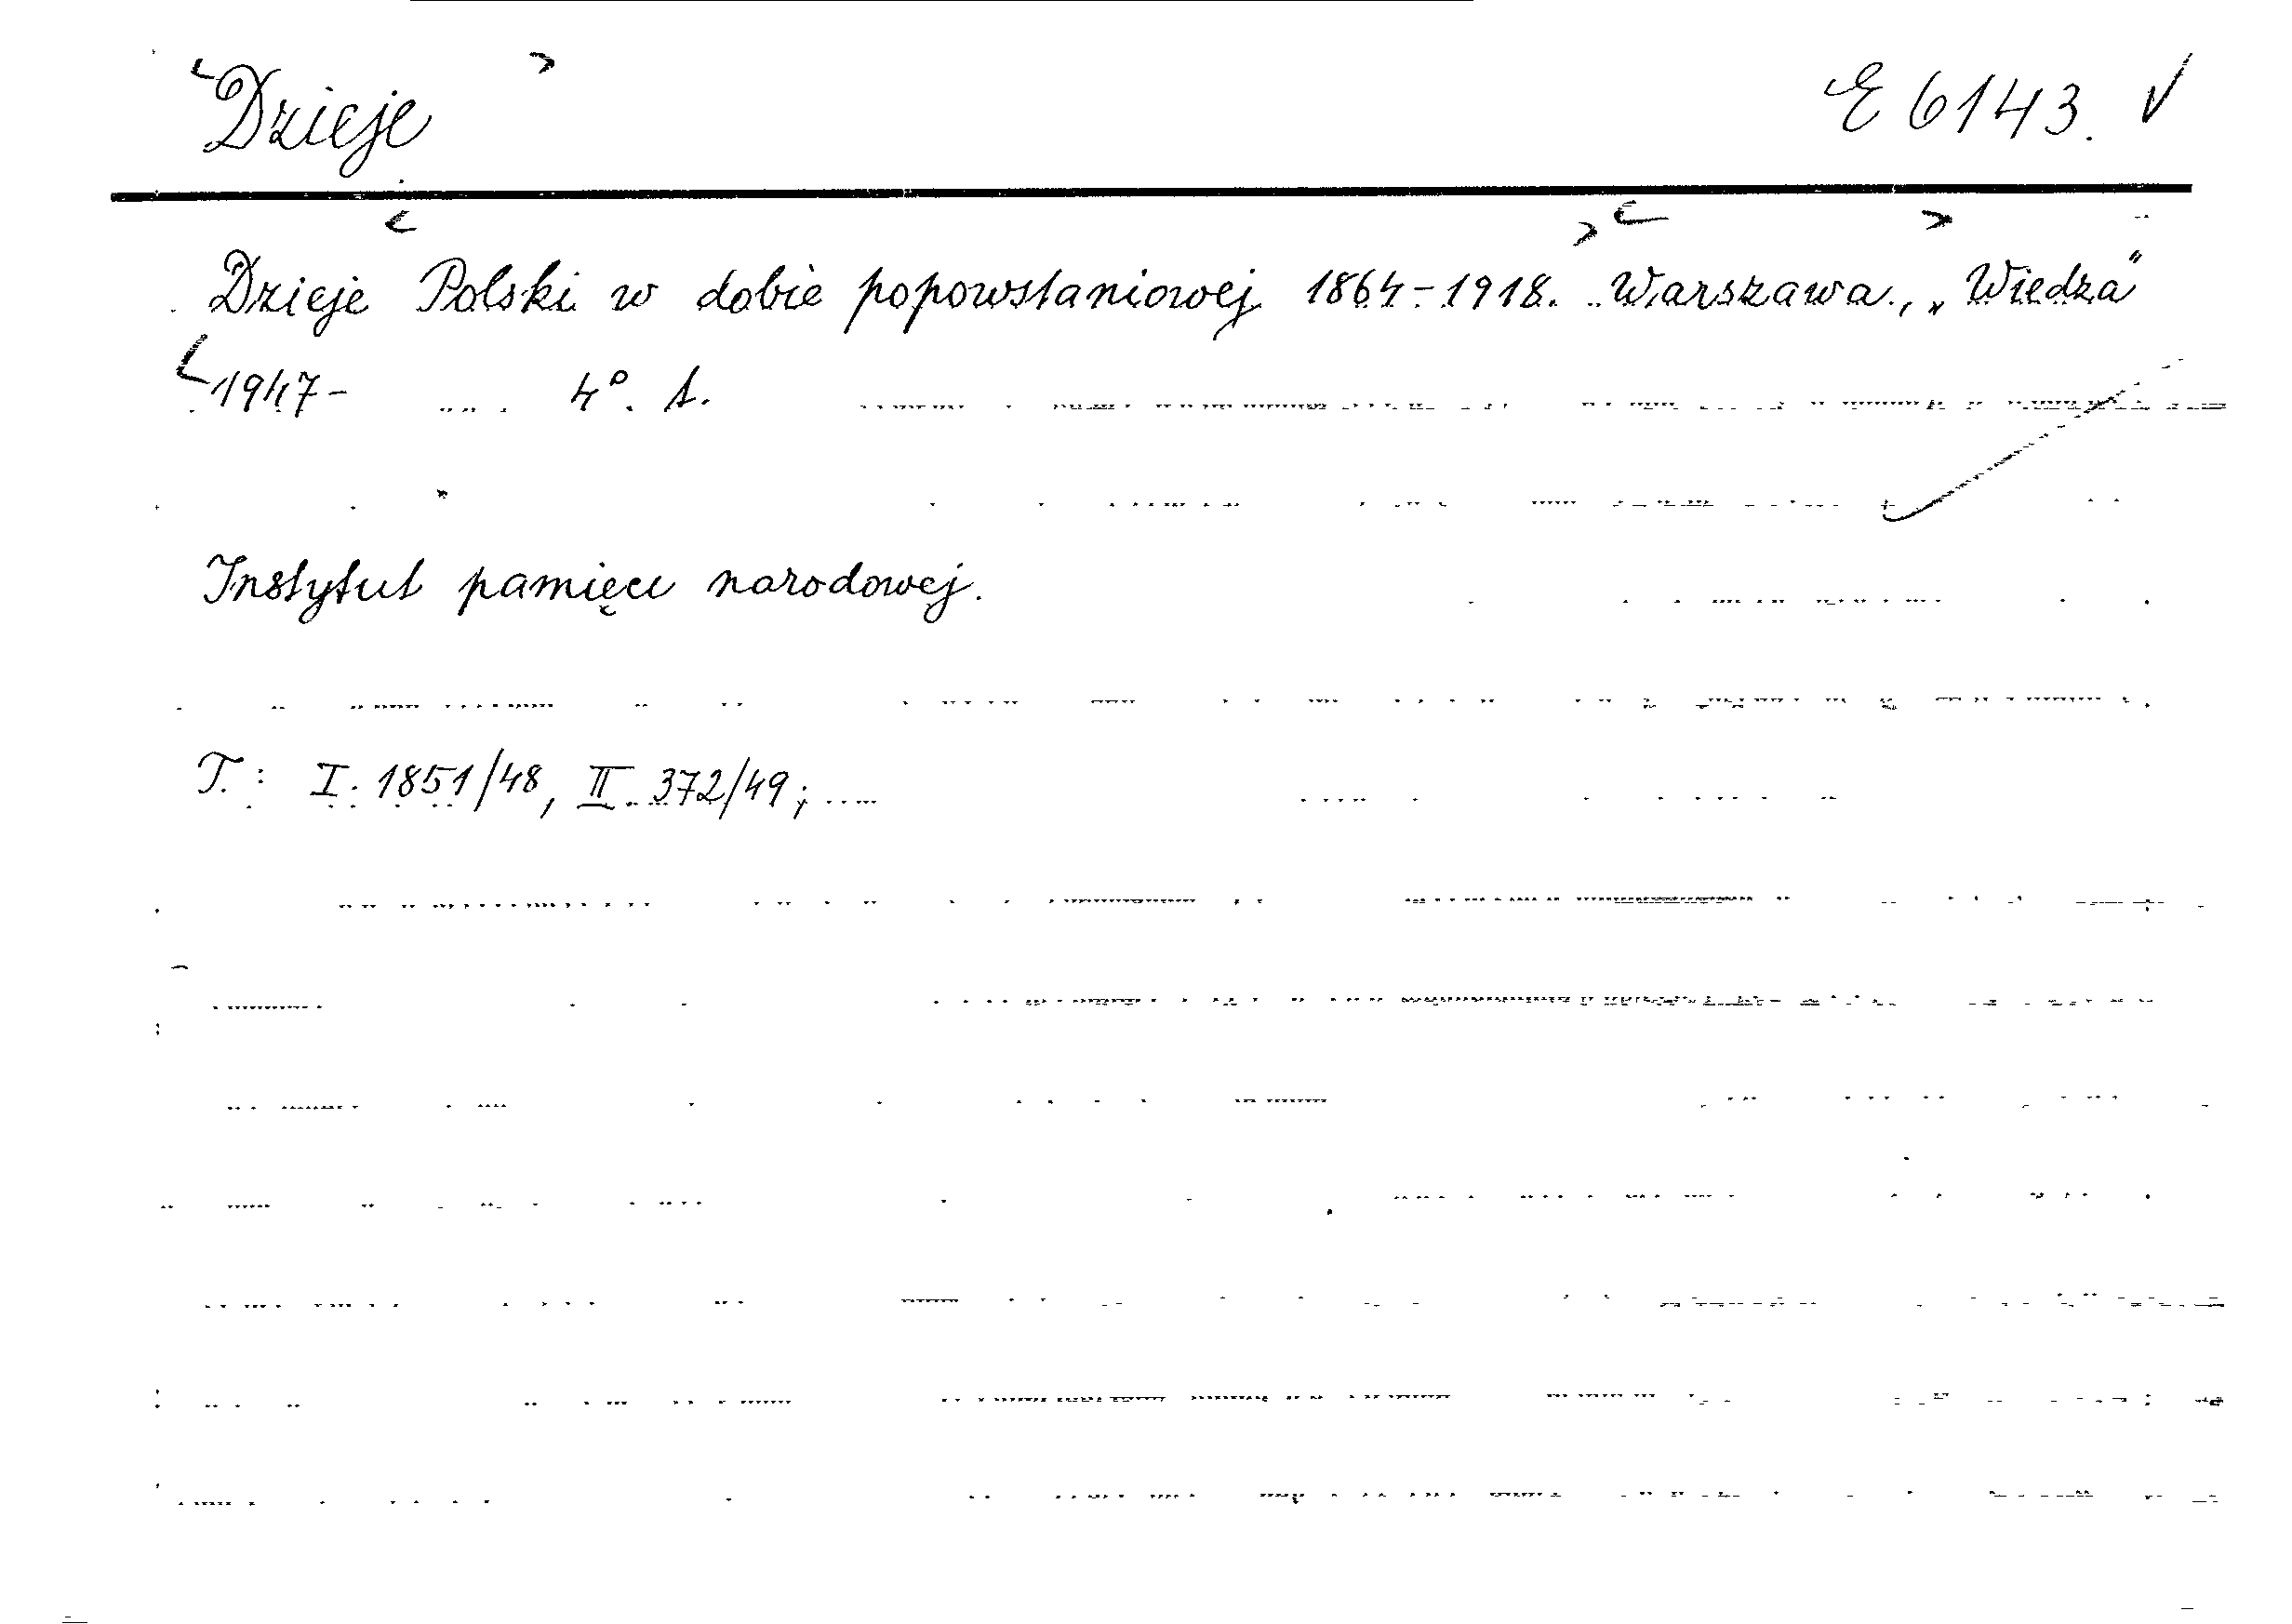 Dzieje E 6143.
Dzieje Polski w dobie popowstaniowej 1864-1918. Warszawa, „Wiedza"
1947- 4°. t.
Instytut pamięci narodowej.
T.: I. 1851/48, II. 372/49;